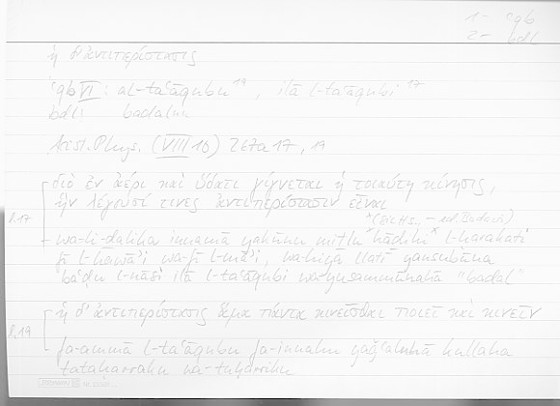 1 - ʿqb
2 - bdl
ἡ δ' ἀντιπερίστασις
ʿqb VI : al-taʿāqubu 19 , ilā l-taʿāqubi 17
bdl : badalun
Arist. Phys. (VIII 10) 267a 17, 19
διὸ ἐν ἀέρι καὶ ὕδατι γίγνεται ἡ τοιαύτη κίνησις,
ἣν λέγουσί τινες ἀντιπερίστασιν εἶναι
*( Hs. - ed. Badawī)
8.17
wa-li-ḏālika innamā yakūnu miṯlu hāḏihi * l-ḥarakati
fī l-hawāʾi wa-fī l-māʾi, wa-hiya llatī yansubūna
baʿḍu l-nāsi ilā l-taʿāqubi wa-yusammūnahā "badal"
ἡ δ' ἀντιπερίστασις ἅμα πάντα κινεῖσθαι ποιεῖ καὶ κινεῖν
8.19
fa-ammā l-taʿāqubu fa-innahu yaǧʿaluhā kullahā
tataḥarraku wa-tuḥarriku